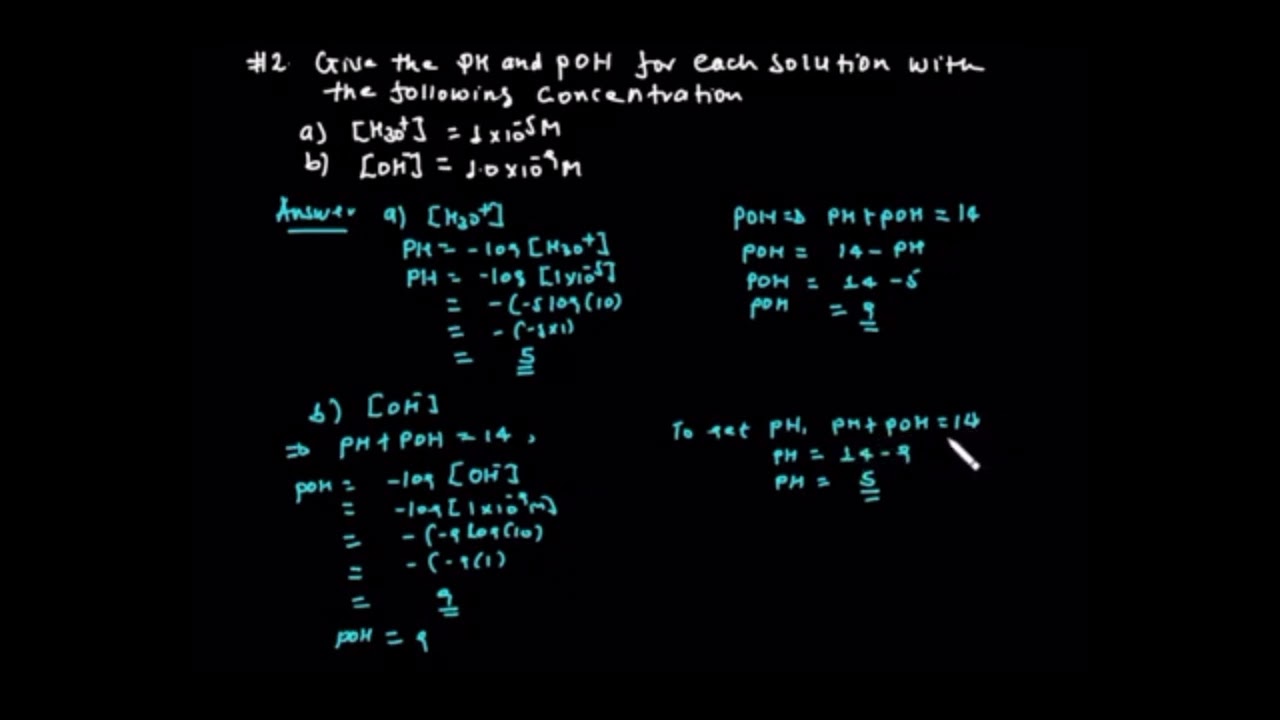 #2 Give the PH and POH for each solution with
the following concentration
a) [H3O+] = 1 x 10^-5 M
b) [OH-] = 1.0 x 10^-9 M
Answer a) [H3O+]
PH = -log [H3O+]
PH = -log [1x10^-5]
= -(-5 log(10)
= -(-5x1)
= 5
POH => PH + POH = 14
POH = 14 - PH
POH = 14 - 5
POH = 9
b) [OH-]
=> PH + POH = 14,
POH = -log [OH-]
= -log [1x10^-9 M]
= -(-9 log(10)
= -(-9(1)
= 9
POH = 9
To get PH, PH + POH = 14
PH = 14 - 9
PH = 5